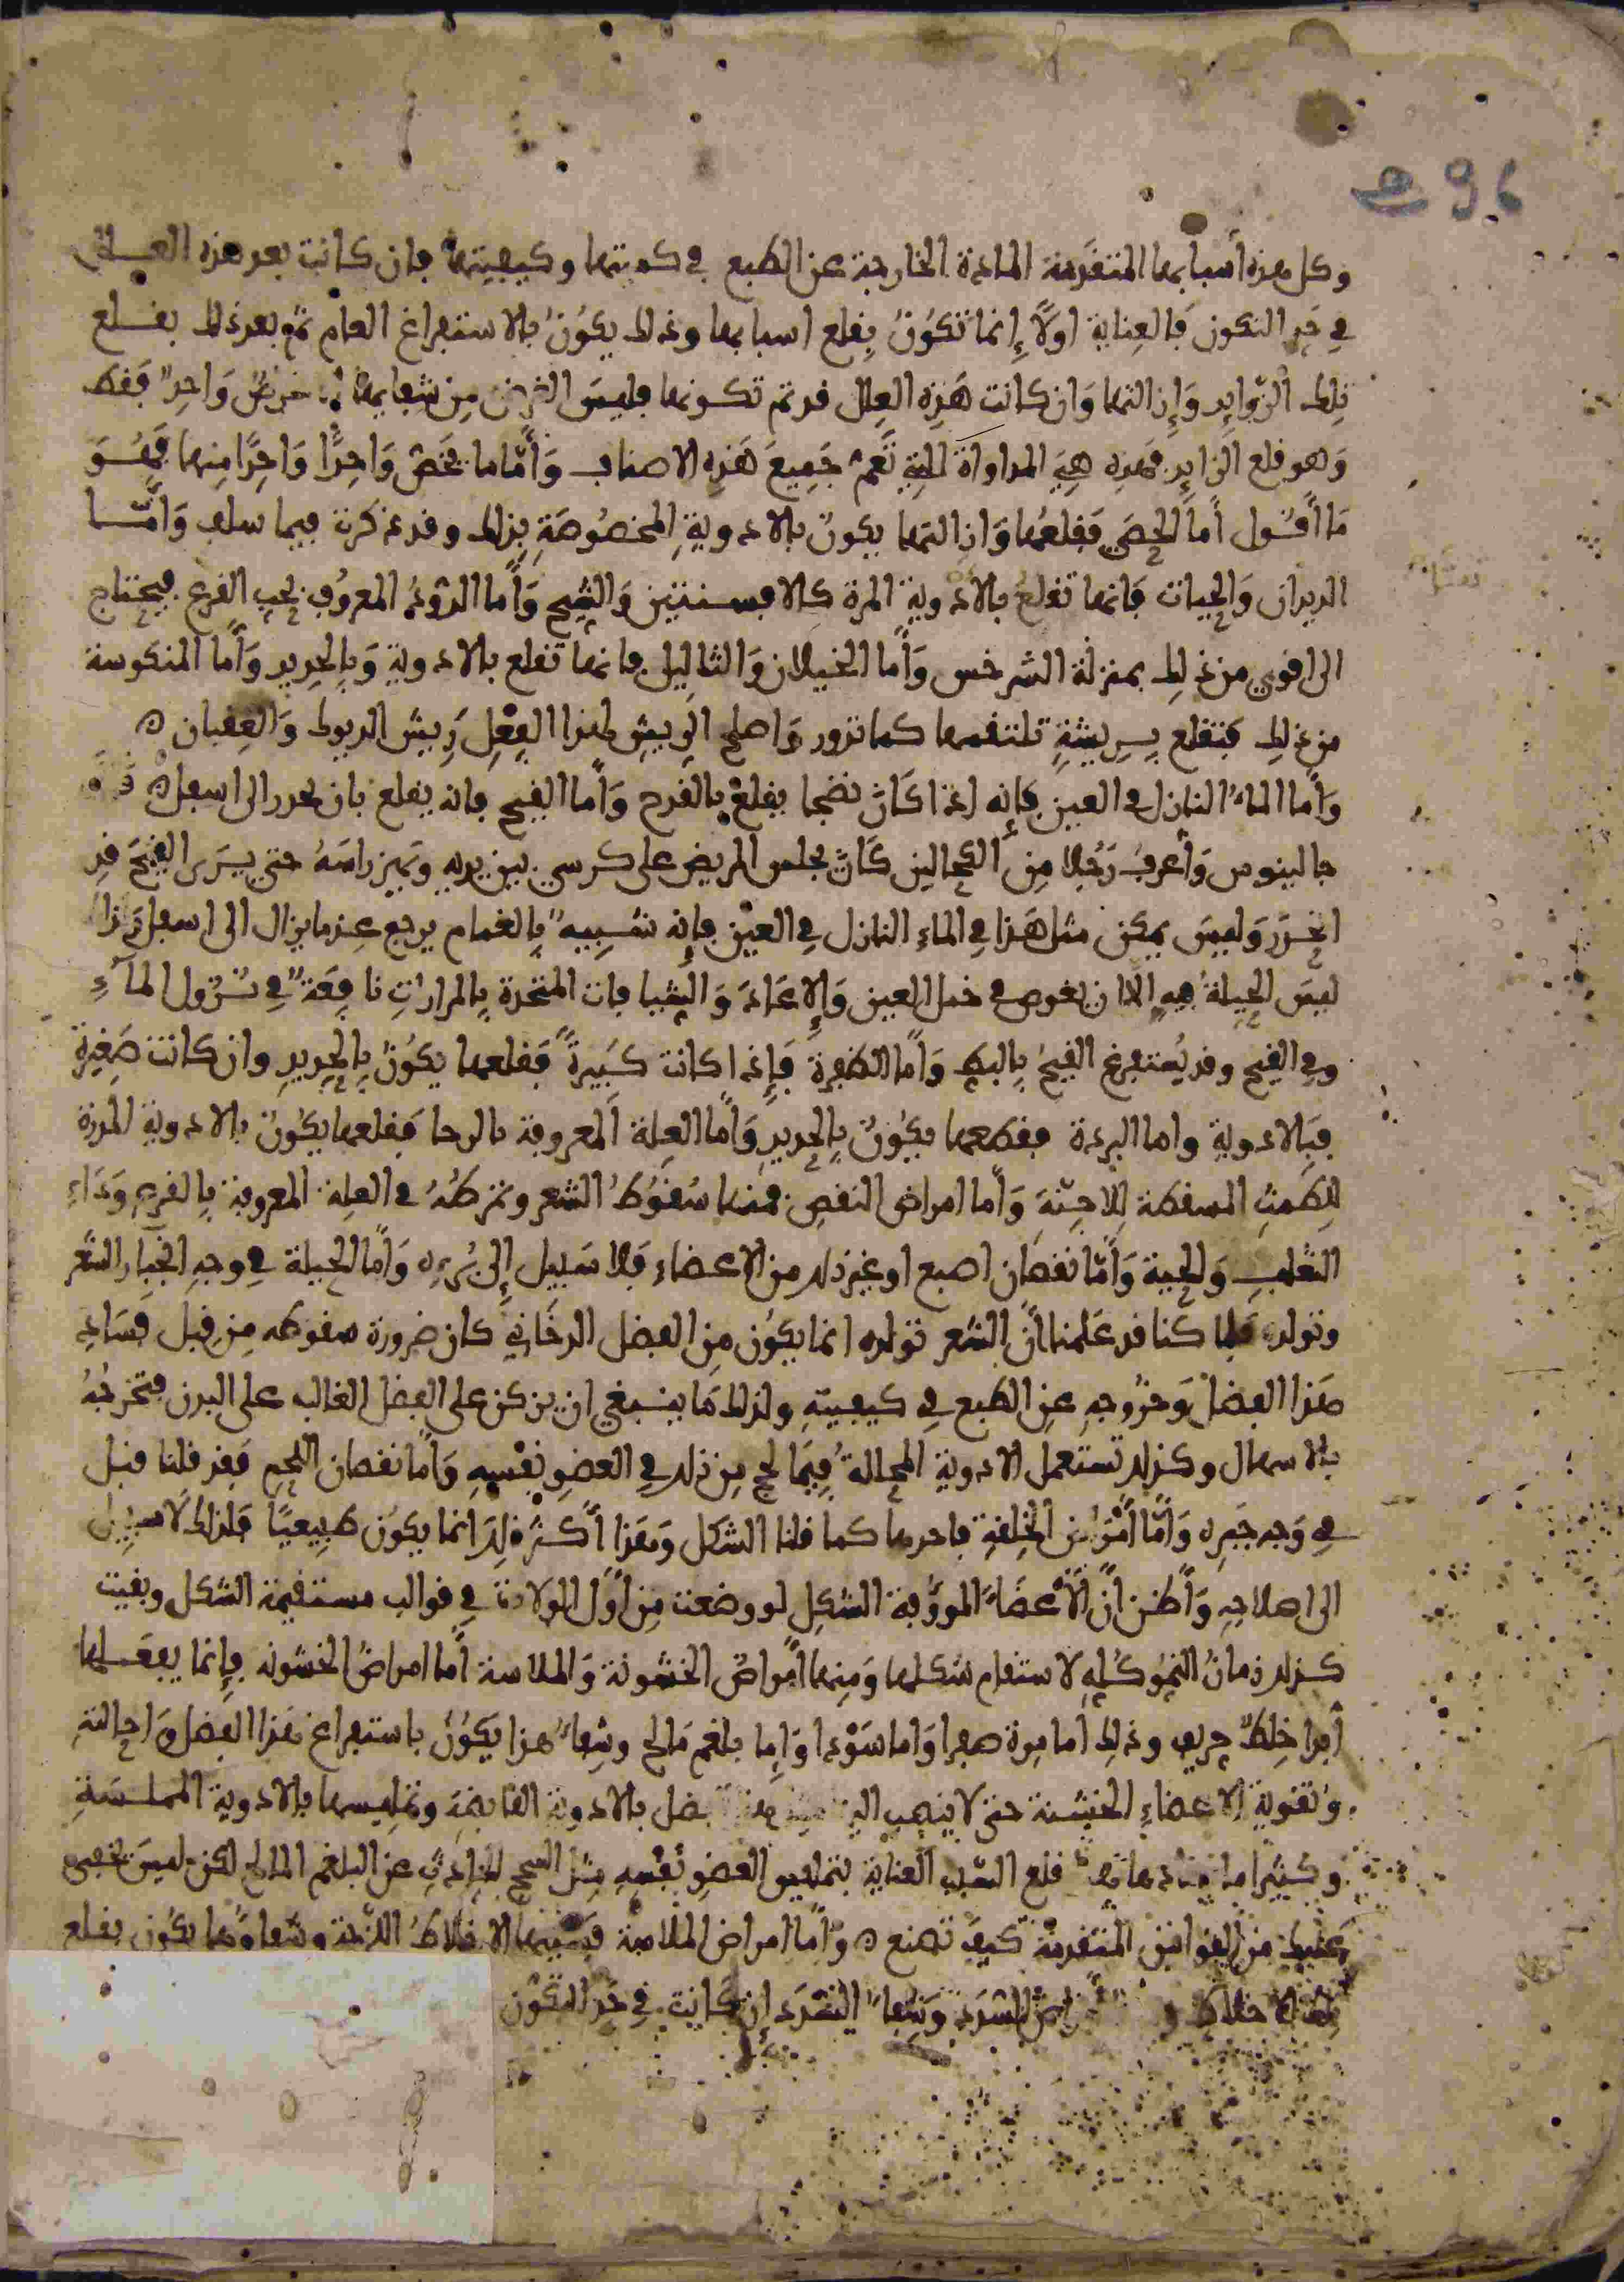 96
وكل هذه أسبابها المتقدمة المادة الخارجة عن الطبع في كميتها وكيفيتها فإن كانت بعد هذه العلل
في حد التكون فالعناية اولا إنما تكون بقلع اسبابها وذلك يكون بالاستفراغ العام ثم بعد ذلك بقلع
تلك الزوايد وإزالتها وان كانت هذه العلل قد تم تكونها فليس الغرض من شفايها غرض واحد فقط
وهو قلع الزايد فهذه هي المداواة التي تعم جميع هذه الاصناف وأما ما يخص واحدا واحدا منها فهو
ما أقول أما الحصى فقلعها وازالتها يكون بالادوية المخصوصة بذلك وقد ذكرت فيما سلف وأما
الديدان والحيات فانها تقلع بالادوية المرة كالافسنتين والشيح وأما الدود المعروف بحب القرع فيحتاج
الى اقوى من ذلك بمنزلة السرخس وأما الخيلان والثاليل فانها تقلع بالادوية وبالحديد وأما المنكوسة
من ذلك فتقلع بريشة تلتقمها كما تدور واصلح الريش لهذا الفعل ريش الديوك والعقبان ه
وأما الماء النازل في العين فإنه اذا كان نضجا يقلع بالقدح وأما القيح فانه يقلع بان يحدر الى اسفل ه
جالينوس وأعرف رجلا من الكحالين كان يجلس المريض على كرسي بين يديه ويهز راسه حتى يرى القيح قد
انحدر وليس يمكن مثل هذا في الماء النازل في العين فإنه شبيه بالغمام يرجع عندما يزال الى اسفل
ليس الحيلة فيه إلا ان يغوص في خمل العين والشيافات المتخذة بالمرارات نافعة في نزول الماء
وفي القيح وقد يستفرغ القيح بالبط وأما الظفرة فإذا كانت كبيرة فقلعها يكون بالحديد وان كانت صغيرة
فبالادوية واما البردة فقطعها يكون بالحديد وأما العلة المعروفة بالرحا فقلعها يكون بالادوية المدرة
للطمث المسقطة للاجنة وأما امراض النقص فمنها سقوط الشعر وتمرطه في العلة المعروفة بالقرع وداء
الثعلب والحية وأما نقصان اصبع او غير ذلك من الاعضاء فلا سبيل إلى برءه وأما الحيلة في وجه الشعر
وتولده فلما كنا قد علمنا أن الشعر تولده انما يكون من الفضل الدخاني كان ضرورة سقوطه من قبل فساد
هذا الفضل وخروجه عن الطبع في كيفيته ولذلك ما ينبغي ان يركن على الفضل الغالب على البدن فتخرجه
بالاسهال وكذلك تستعمل الادوية المحللة فيما لحج من ذلك في العضو نفسه وأما نقصان اللحم فقد قلنا قبل
في وجه جبره وأما امراض الخلقة فاحدها كما قلنا الشكل وهذا أكثر ذلك انما يكون طبيعيا فلذلك لا سبيل
الى اصلاحه وأظن أن الأعضاء المووفة الشكل لو وضعت من أول الولادة في قوالب مستقيمة الشكل وبقيت
كذلك زمان النمو كله لاستقام شكلها ومنها أمراض الخشونة والملاسة أما امراض الخشونه فإنما يفعلها
أبدا خلط حريف وذلك اما مرة صفرا واما سودا وإما بلغم مالح وشفاء هذا يكون باستفراغ هذا الفضل واحالته
وتقوية الاعضاء الخشنة حتى لا ينصب اليها بالادوية القابضة وتمليسها بالادوية المملسة
وكثيرا ما قلع السبب العناية بتمليس العضو نفسه مثل السحج الحادث عن البلغم المالح لكن ليس يخفى
عليك من القوانين المتقدمة كيف تصنع ه وأما امراض الملاسة فسببها الاخلاط اللزجة وشفاوها يكون بقلع
تلك الاخلاط السدد وشفاء السدد إن كانت في حد التكون